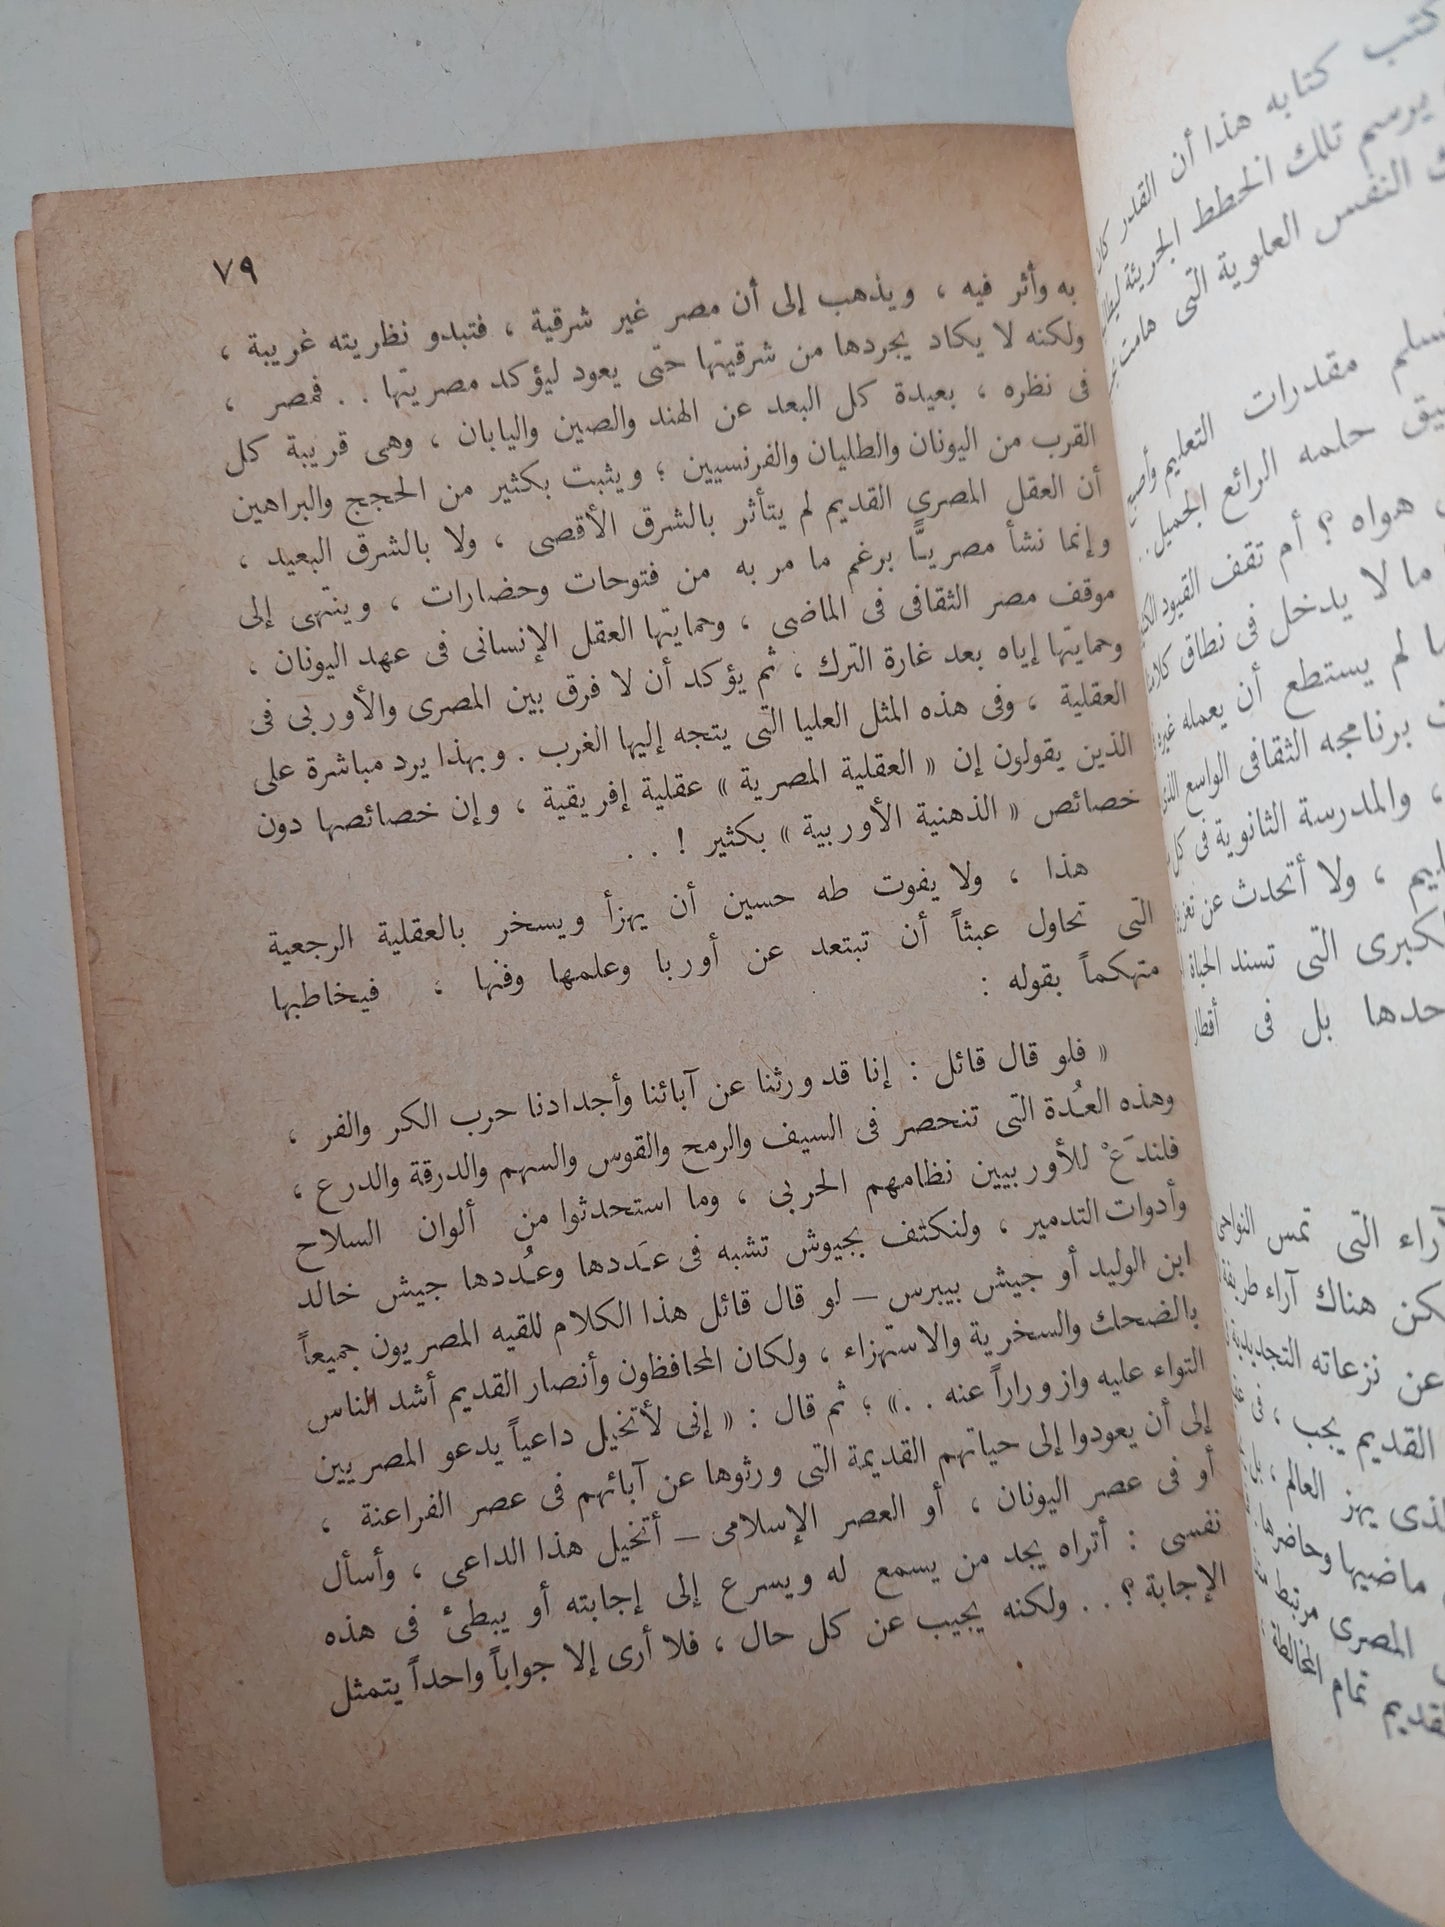 ٧٩
به وأثر فيه ، ويذهب إلى أن مصر غير شرقية ، فتبدو نظريته غريبة ،
ولكنه لا يكاد يجردها من شرقيتها حتى يعود ليؤكد مصريتها . . فمصر ،
فى نظره ، بعيدة كل البعد عن الهند والصين واليابان ، وهى قريبة كل
القرب من اليونان والطليان والفرنسيين ؛ ويثبت بكثير من الحجج والبراهين
أن العقل المصرى القديم لم يتأثر بالشرق الأقصى ، ولا بالشرق البعيد ،
وإنما نشأ مصريًّا برغم ما مر به من فتوحات وحضارات ، وينتهى إلى
موقف مصر الثقافى فى الماضى ، وحمايتها العقل الإنسانى فى عهد اليونان ،
وحمايتها إياه بعد غارة الترك ، ثم يؤكد أن لا فرق بين المصرى والأوربى فى
العقلية ، وفى هذه المثل العليا التى يتجه إليها الغرب . وبهذا يرد مباشرة على
الذين يقولون إن « العقلية المصرية » عقلية إفريقية ، وإن خصائصها دون
خصائص « الذهنية الأوربية » بكثير ! . .
هذا ، ولا يفوت طه حسين أن يهزأ ويسخر بالعقلية الرجعية
التى تحاول عبثاً أن تبتعد عن أوربا وعلمها وفنها ، فيخاطبها
متهكماً بقوله :
« فلو قال قائل : إنا قد ورثنا عن آبائنا وأجدادنا حرب الكر والفر ،
وهذه العُدة التى تنحصر فى السيف والرمح والقوس والسهم والدرقة والدرع ،
فلندَعْ للأوربيين نظامهم الحربى ، وما استحدثوا من ألوان السلاح
وأدوات التدمير ، ولنكتف بجيوش تشبه فى عَددها وعُددها جيش خالد
ابن الوليد أو جيش بيبرس – لو قال قائل هذا الكلام للقيه المصريون جميعاً
بالضحك والسخرية والاستهزاء ، ولكان المحافظون وأنصار القديم أشد الناس
التواء عليه وازوراراً عنه . .» ؛ ثم قال : « إنى لأتخيل داعياً يدعو المصريين
إلى أن يعودوا إلى حياتهم القديمة التى ورثوها عن آبائهم فى عصر الفراعنة ،
أو فى عصر اليونان ، أو العصر الإسلامى – أتخيل هذا الداعى ، وأسأل
نفسى : أتراه يجد من يسمع له ويسرع إلى إجابته أو يبطئ فى هذه
الإجابة ؟ . . ولكنه يجيب عن كل حال ، فلا أرى إلا جواباً واحداً يتمثل
كتب كتابه هذا أن القدر
يرسم تلك الخطط الجريئة
النفس العلوية التى هامت
مقدرات التعليم
حلمه الرائع الجميل
هواه ؟ أم تقف القيود
ما لا يدخل فى نطاق
لم يستطع أن يعمله
برنامجه الثقافى الواسع
، والمدرسة الثانوية فى
، ولا أتحدث عن
التى تسند الحياة
بل فى
التى تمس النواحى
هناك آراء
عن نزعاته التجديدية
القديم يجب ، فى
يهز العالم ،
ماضيها
المصرى مرتبط
تمام المخالطة